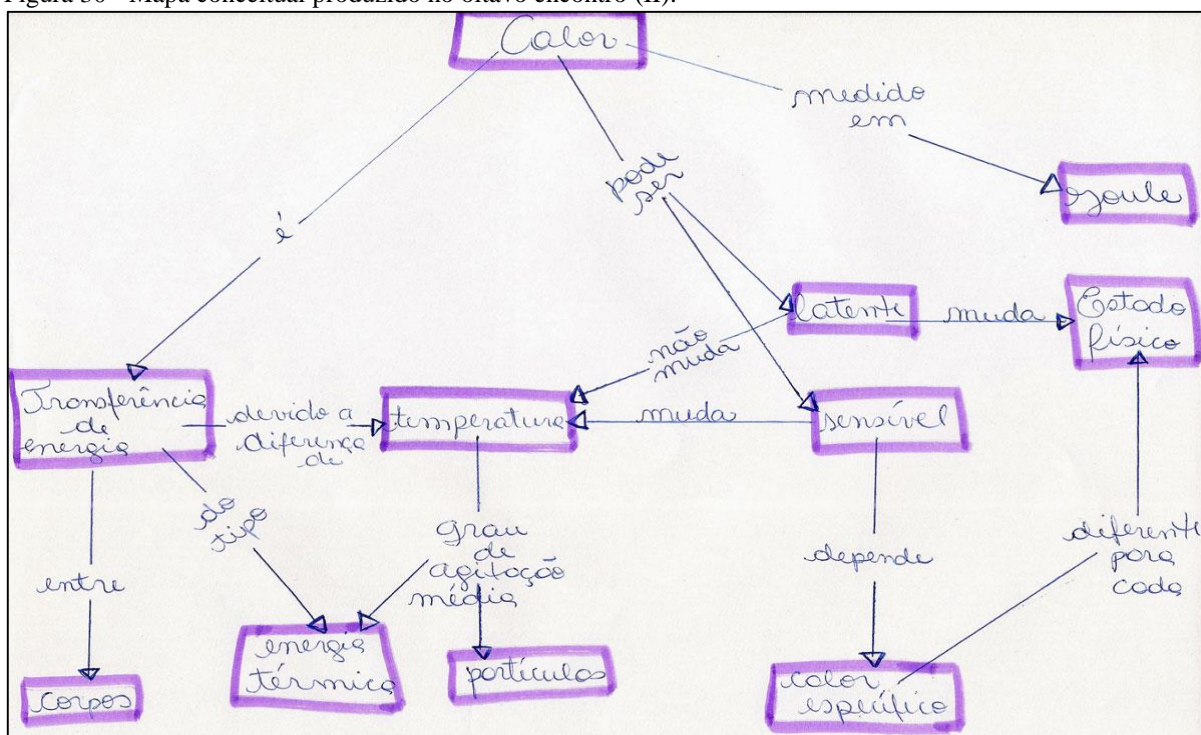 Figura 30 - Mapa conceitual produzido no oitavo encontro (II).
Calor
medido
em
pode
ser
Joule
é
latente
muda
Estado
físico
não
muda
Transferência
de
energia
devido a
diferença
de
temperatura
muda
sensível
do
tipo
grau
de
agitação
média
entre
depende
diferente
para
cada
energia
térmica
partículas
corpos
calor
específico